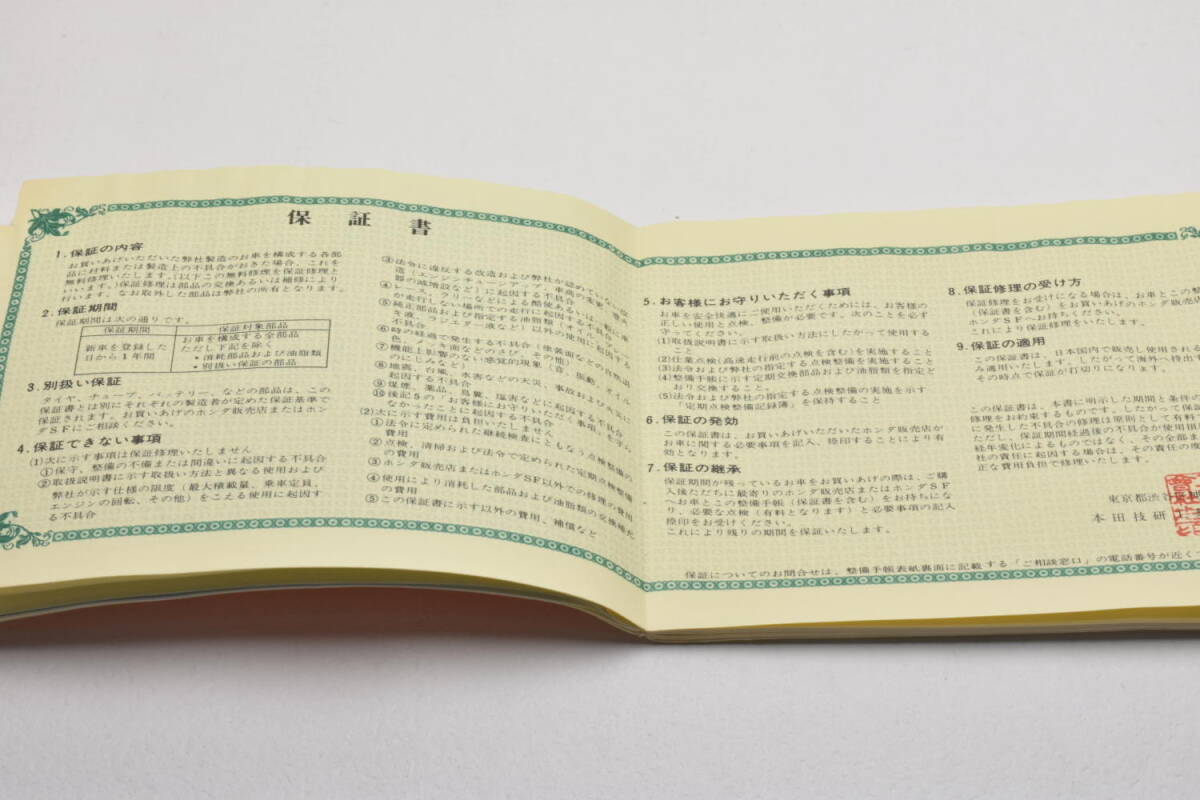 保証書
1.保証の内容
お買いあげいただいた弊社製造のお車を構成する各部
品に材料または製造上の不具合がおきた場合、これを
無料修理いたします。(以下この無料修理を保証修理と
いいます。)保証修理は部品の交換あるいは補修により
行います。なお取外した部品は弊社の所有となります。
2.保証期間
保証期間は次の通りです。
保証期間 保証対象部品
新車を登録した
日から1年間
お車を構成する全部品
ただし下記を除く
・消耗部品および油脂類
・別扱い保証の部品
3.別扱い保証
タイヤ、チューブ、バッテリー、などの部品は、この
保証書とは別にそれぞれの製造者が定めた保証基準で
保証されます。お買いあげのホンダ販売店またはホン
ダSFにご相談ください。
4.保証できない事項
(1)次に示す事項は保証修理いたしません
①保守、整備の不備または間違いに起因する不具合
②取扱説明書に示す取扱い方法と異なる使用および
弊社が示す仕様の限度(最大積載量、乗車定員、
エンジンの回転、その他)をこえる使用に起因す
る不具合
③法令に違反する改造および弊社が認めていない
造(エンジンチューンアップ、車高の変更、
器の該増設など)に起因する不具合
④レース、ラリーなどによる酷使、あるいは一般に車
が走行しない場所での走行に起因する不具合
⑤純正部品および指定する油脂類(オイル、
キ液、ラジエター液など)以外の使用に起因する
不具合
⑥時の経過で発生する不具合(塗装面などの自然退
色、メッキ面などのさび、その他)
⑦機能上影響のない感覚的現象(音、振動、オイル
のにじみなど)
⑧地震、台風、水害などの天災、事故および火災に
起因する不具合
⑨煤煙、薬品、鳥糞、塩害などに起因する不具合
⑩後記5の「お客様にお守りいただく事項」を守ら
なかったことに起因する不具合
(2)次に示す費用は負担いたしません
①法令に定められた継続検査にともなう点検整備の
費用
②点検、清掃および法令で定められた定期点検整備
の費用
③ホンダ販売店またはホンダSF以外での修理の費用
④使用により消耗した部品および油脂類の交換補充
の費用
⑤この保証書に示す以外の費用、補償など
5.お客様にお守りいただく事項
お車を安全快適にご使用いただくためには、お客様の
正しい使用と点検、整備が必要です。次のことを必ず
守ってください。
(1)取扱説明書に示す取扱い方法にしたがって使用する
こと
(2)仕業点検(高速走行前の点検を含む)を実施すること
(3)法令および弊社の指定する点検整備を実施すること
(4)整備手帳に示す定期交換部品および油脂類を指定ど
おり交換すること。
(5)法令および弊社の指定する点検整備の実施を示す
「定期点検整備記録簿」を保持すること
6.保証の発効
この保証書は、お買いあげいただいたホンダ販売店が
お車に関する必要事項を記入、捺印することにより有
効となります。
7.保証の継承
保証期間が残っているお車をお買いあげの際は、ご購
入後ただちに最寄りのホンダ販売店またはホンダSF
へお車とこの整備手帳(保証書を含む)をお持ちにな
り、必要な点検(有料となります)と必要事項の記入
捺印をお受けください。
これにより残りの期間を保証いたします。
8.保証修理の受け方
保証修理をお受けになる場合は、お車とこの整
(保証書を含む)をお買いあげのホンダ販売
ホンダSFへお持ちください。
これにより保証修理をいたします。
9.保証の適用
この保証書は、日本国内で販売し使用される
み適用いたします。したがって海外へ持出す
その時点で保証が打切りになります。
この保証書は、本書に明示した期間と条件の
修理をお約束するものです。したがって保証
に発生した不具合の修理は原則として有料で
ただし、保証期間経過後の不具合が使用損
経年変化によるものではなく、その全部ま
社の責任に起因する場合は、その責任の度
正な費用負担で修理いたします。
東京都渋
本田技研工
保証についてのお問合せは、整備手帳表紙裏面に記載する「ご相談窓口」の電話番号が近く